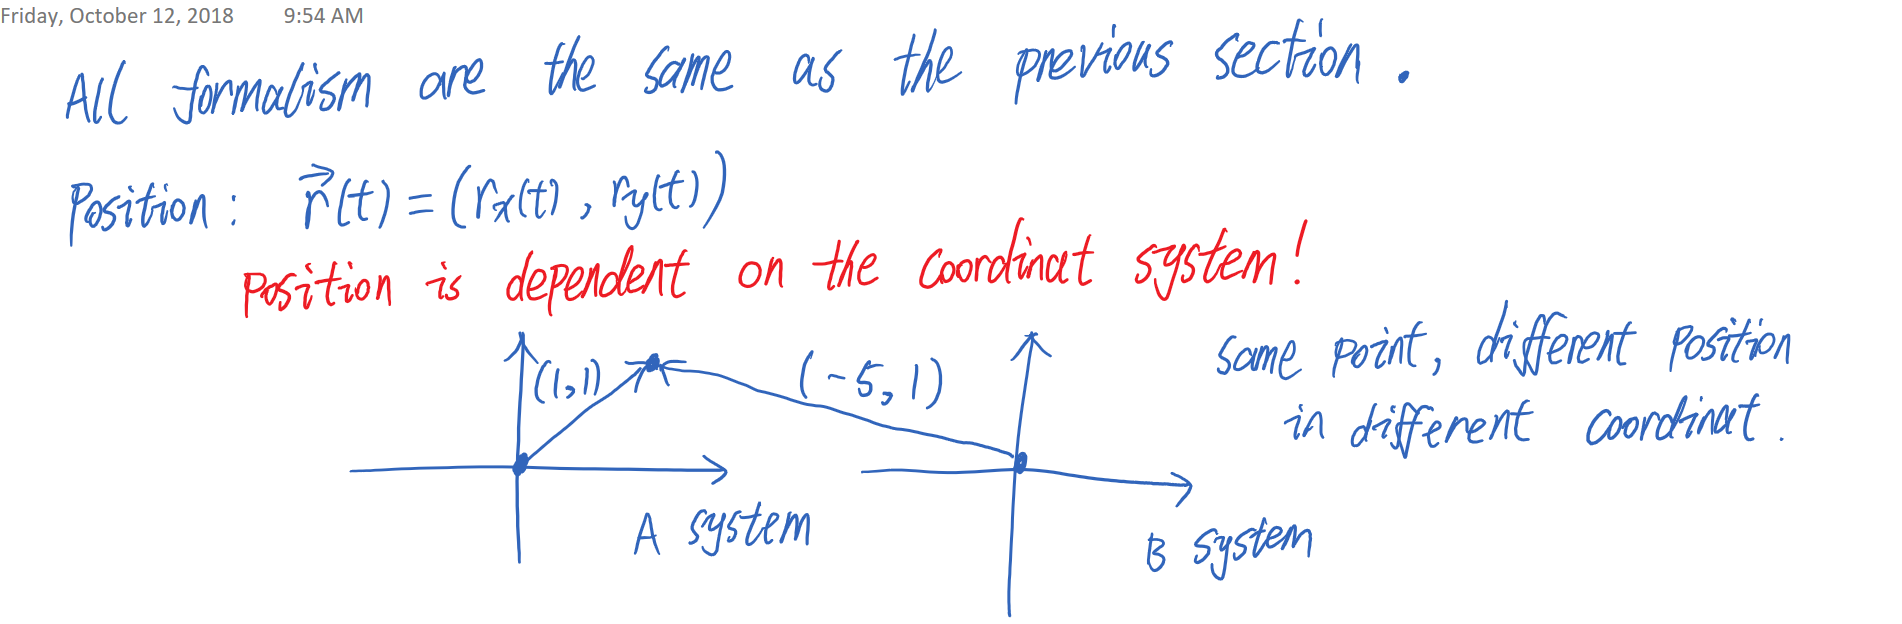 Friday, October 12, 2018 9:54 AM
All formalism are the same as the previous section.
Position: r⃗(t) = (rx(t), ry(t))
Position is dependent on the coordinat system!
(1,1) (-5,1)
same point, different position
in different coordinat.
A system
B system